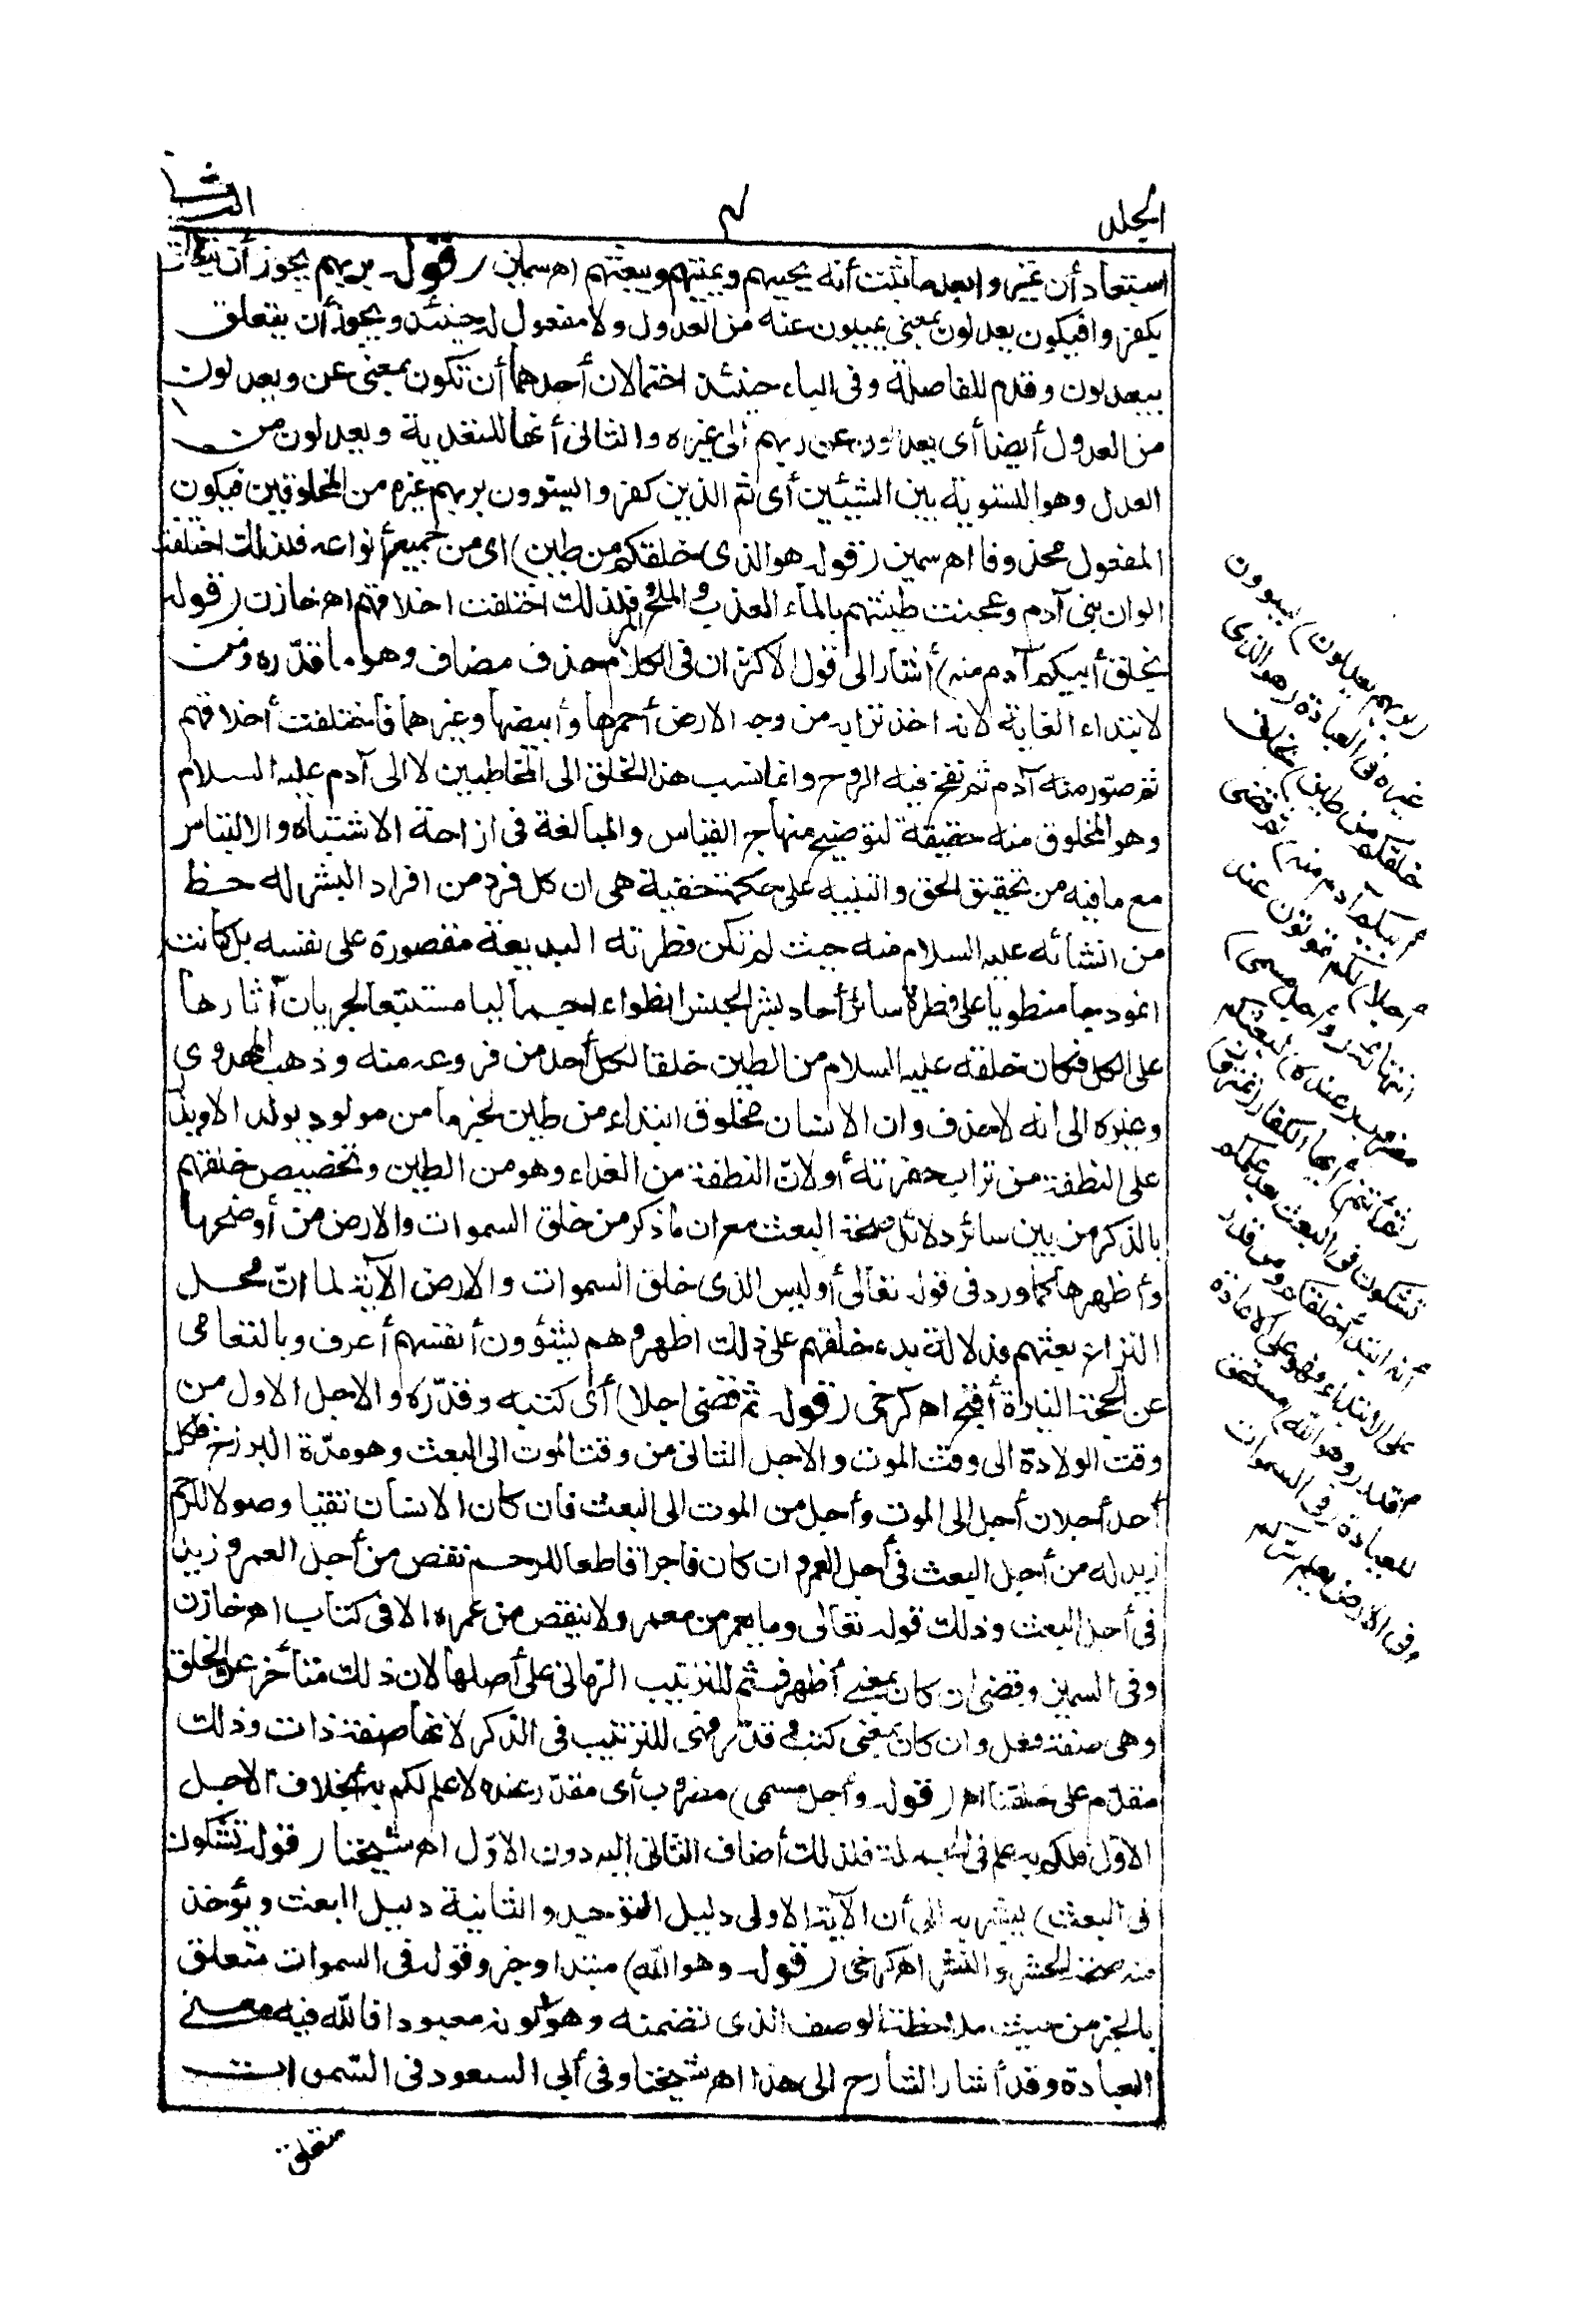 المجلد
٤
الثاني
استبعاد أن يمتروا بعد ما ثبت أنه يحييهم ويميتهم ويبعثهم اهـ سمين (قوله بربهم يجوز أن يتعلق
يكفروا فيكون يعدلون بمعنى يميلون عنه من العدول ولا مفعول له حينئذ ويجوز أن يتعلق
بيعدلون وقدم للفاصلة وفى الباء حينئذ احتمالان أحدهما أن تكون بمعنى عن ويعدلون
من العدول أيضا أى يعدلون عن ربهم إلى غيره والثانى أنها للتعدية ويعدلون من
العدل وهو التسوية بين الشيئين أى ثم الذين كفروا يسوون بربهم غيره من المخلوقين فيكون
المفعول محذوفا اهـ سمين (قوله هو الذى خلقكم من طين) اى من جميع أنواعه فلذلك اختلفت
الوان بنى آدم وعجنت طينتهم بالماء العذب والملح والمر فلذلك اختلفت اخلاقهم اهـ خازن (قوله
بخلق أبيكم آدم منه) أشار الى قول الاكثر ان فى الكلام حذف مضاف وهو ما قدّره ومن
لابتداء الغاية لانه اخذ ترابه من وجه الارض أحمرها وأبيضها وغيرهما فاختلفت أخلاقهم
ثم صوّر منه آدم ثم نفخ فيه الروح وانما نسب هذا الخلق الى المخاطبين لا الى آدم عليه السلام
وهو المخلوق منه حقيقة لتوضيح منهاج القياس والمبالغة فى ازاحة الاشتباه والالتباس
مع ما فيه من تحقيق الحق والتنبيه على حكمة خفية هى ان كل فرد من افراد البشر له حظ
من انشائه عليه السلام منه حيث لم تكن فطرته البديعة مقصورة على نفسه بل كانت
انموذجا منطويا على فطرة سائر أحاد بشر الجنس انطواء اجماليا مستتبعا لجريان آثارها
على الكل فكان خلقه عليه السلام من الطين خلقا لكل أحد من فروعه منه وذهب المهدوى
وغيره الى أنه لا حذف وان الانسان مخلوق ابتداء من طين لخبر ما من مولود يولد الا ويذر
على النطفة من تراب حفرته أو لانّ النطفة من الغذاء وهو من الطين وتخصيص خلقهم
بالذكر من بين سائر دلائل صحة البعث مع ان ما ذكر من خلق السموات والارض من أوضحها
وأظهرها كما ورد فى قوله تعالى أو ليس الذى خلق السموات والارض الآية لما انّ محل
النزاع بعثهم فدلالة بدء خلقهم على ذلك اظهر وهم بشؤون أنفسهم أعرف وبالتعامى
عن الحجة النيرة أقبح اهـ كرخى (قوله ثم قضى اجلا) أى كتبه وقدّره والاجل الاول من
وقت الولادة الى وقت الموت والاجل الثانى من وقت الموت الى البعث وهو مدّة البرزخ فلكل
أحد أجلان أجل إلى الموت وأجل من الموت الى البعث فان كان الانسان تقيا وصولا للرحم
زيد له من أجل البعث فى أجل العمر وان كان فاجرا قاطعا للرحم نقص من أجل العمر وزيد
فى أجل البعث وذلك قوله تعالى وما يعمر من معمر ولا ينقص من عمره الا فى كتاب اهـ خازن
وفى السمين وقضى ان كان بمعنى أظهر فثم للترتيب الزمانى على أصلها لان ذلك متأخر عن الخلق
وهى صفة فعل وان كان بمعنى كتب وقدّر فهى للترتيب فى الذكر لانها صفة ذات وذلك
مقدّم على خلقنا اهـ (قوله وأجل مسمى) مضروب أى مقدّر عنده لا علم لكم به بخلاف الاجل
الاوّل فلكم به علم فى الجملة فلذلك أضاف الثانى اليه دون الاوّل اهـ شيخنا (قوله تشكون
فى البعث) يشير به الى أن الآية الاولى دليل التوحيد والثانية دليل البعث ويؤخذ
منه صحة الحشر والنشر اهـ كرخى (قوله وهو الله) مبتدا وخبر وقوله فى السموات متعلق
بالخبر من حيث ملاحظة الوصف الذى تضمنه وهو كونه معبودا فالله فيه معنى
العبادة وقد أشار الشارح الى هذا اهـ شيخنا وفى أبى السعود فى السموات
متعلق
(بربهم يعدلون) يسوون
غيره فى العبادة (هو الذى
خلقكم من طين) بخلق
أبيكم آدم منه (ثم قضى
أجلا) لكم تموتون عند
انتهائه (وأجل مسمى)
مضروب (عنده) لبعثكم
(ثم أنتم) أيها الكفار (تمترون)
تشكون فى البعث بعد علمكم
أنه ابتدأ خلقكم ومن قدر
على الابتداء فهو على الاعادة
اقدر (وهو الله) مستحق
للعبادة (فى السموات
وفى الارض يعلم سركم